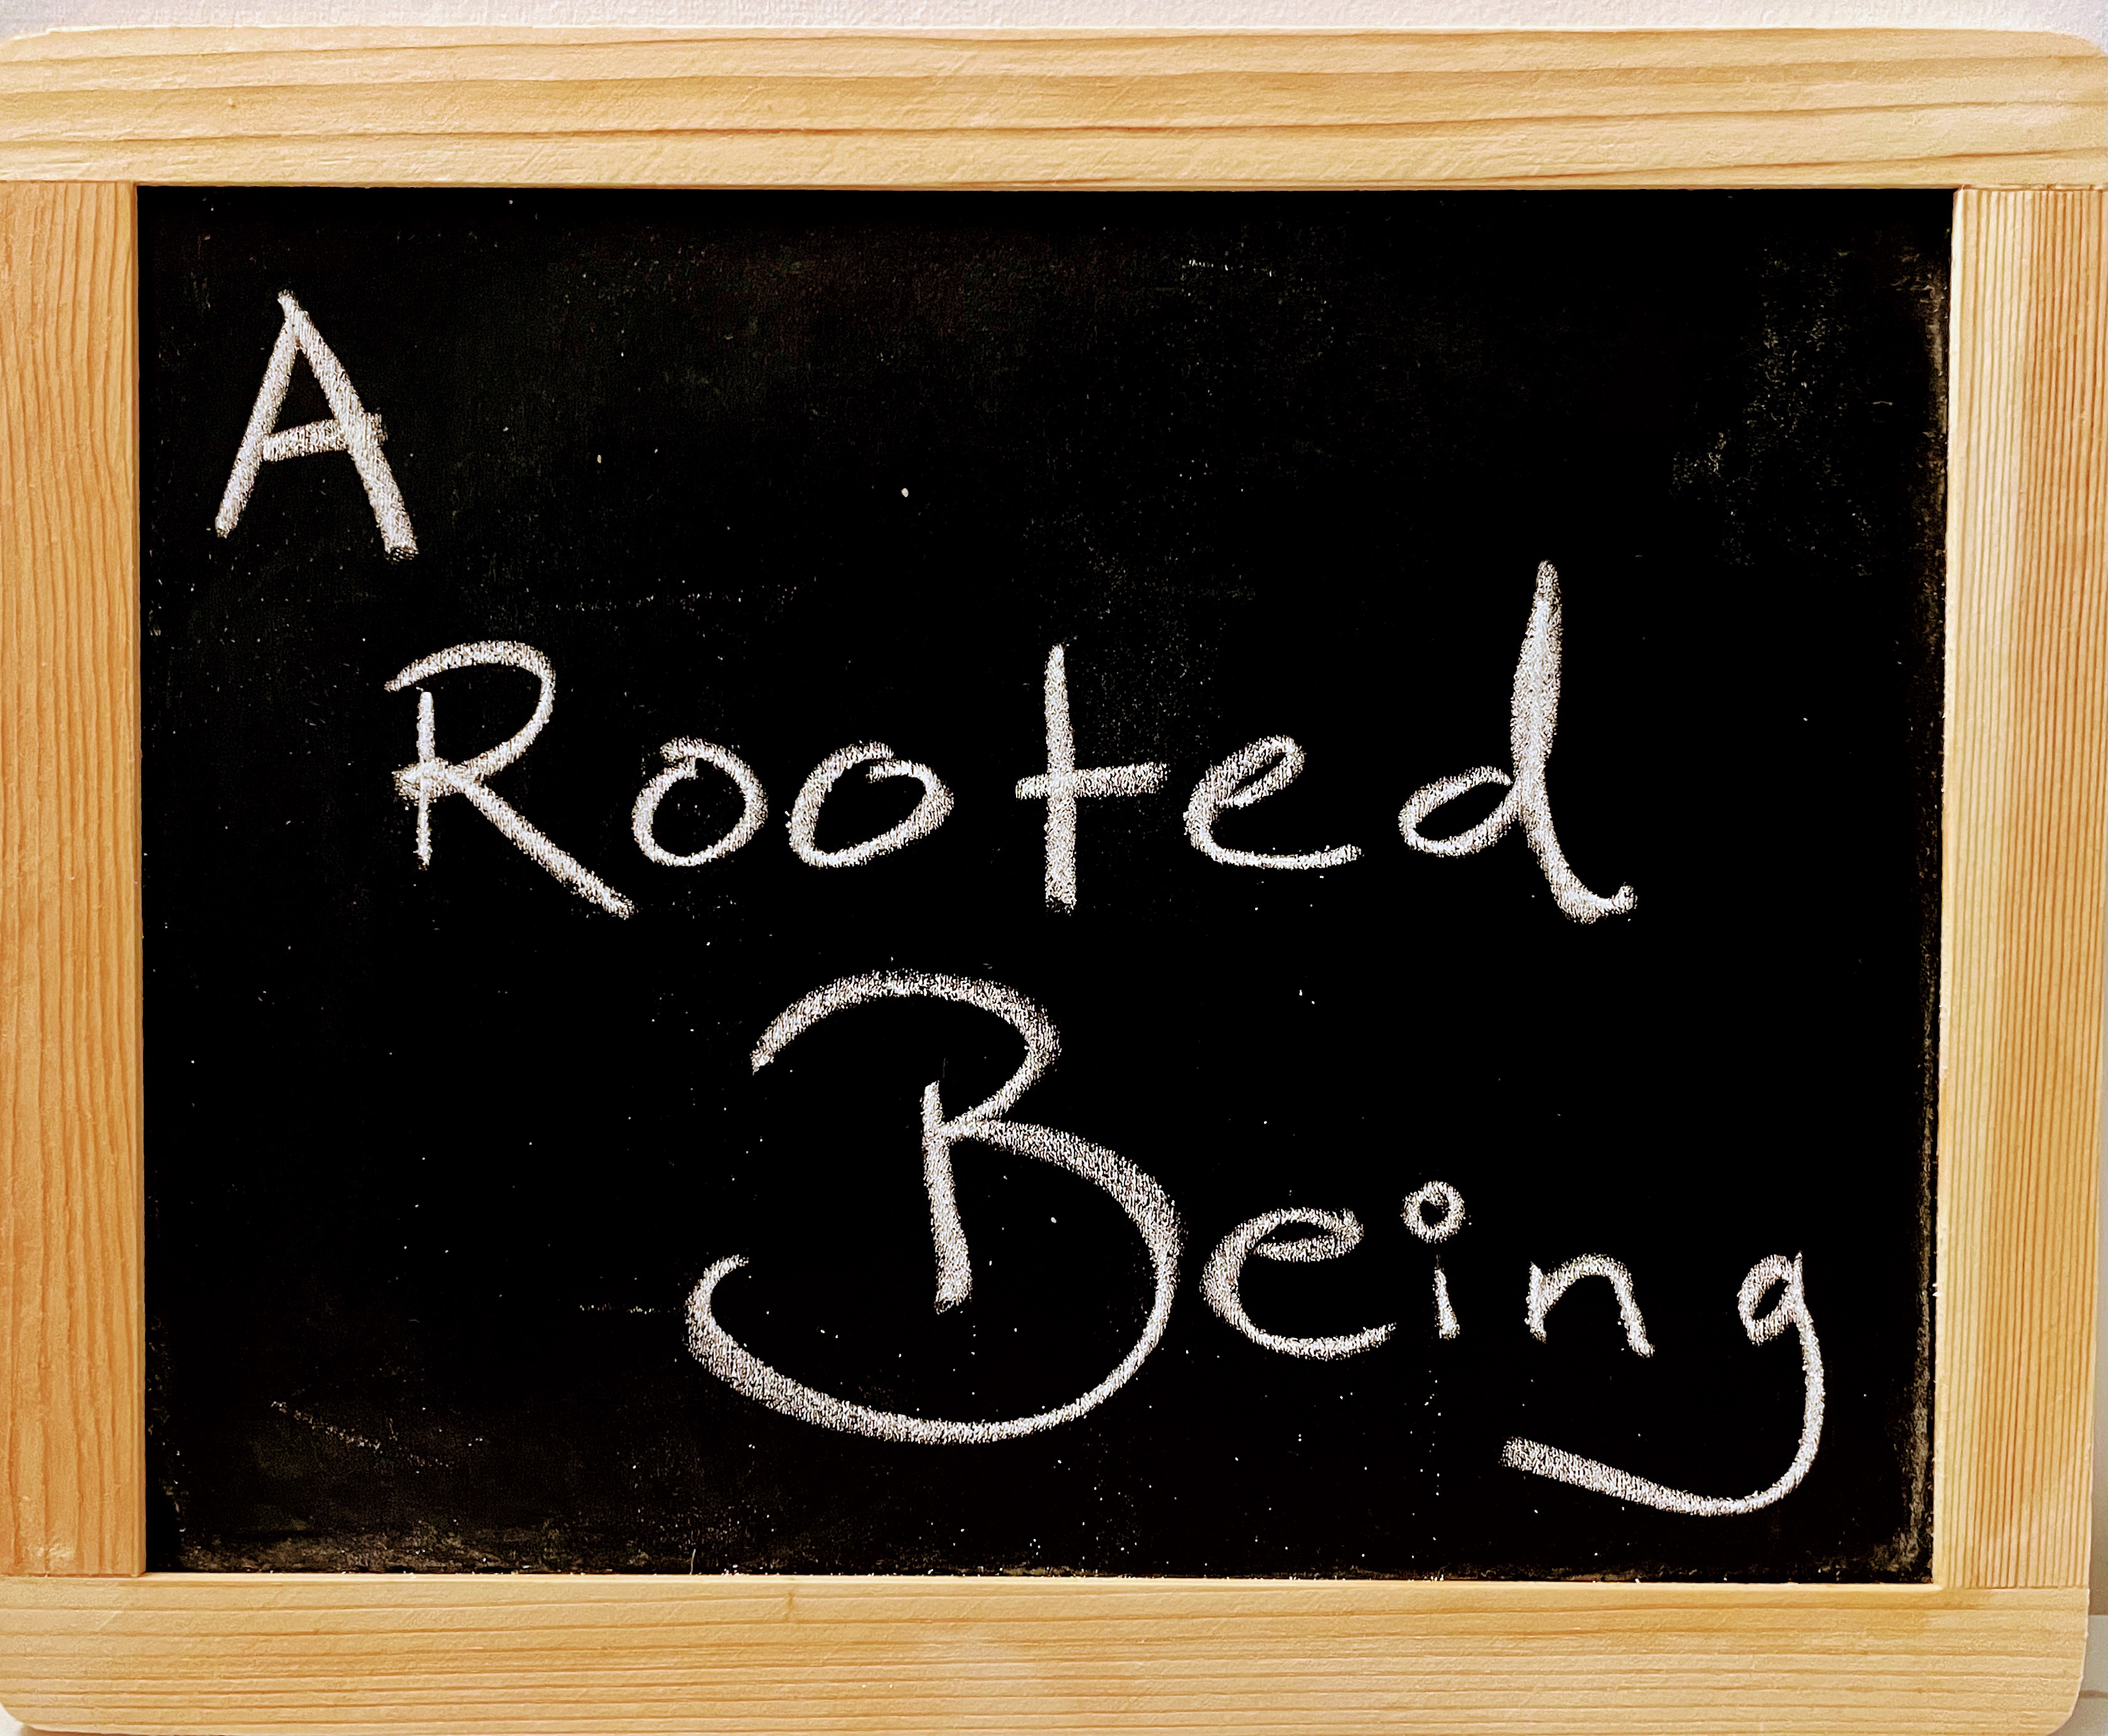 A
Rooted
Being